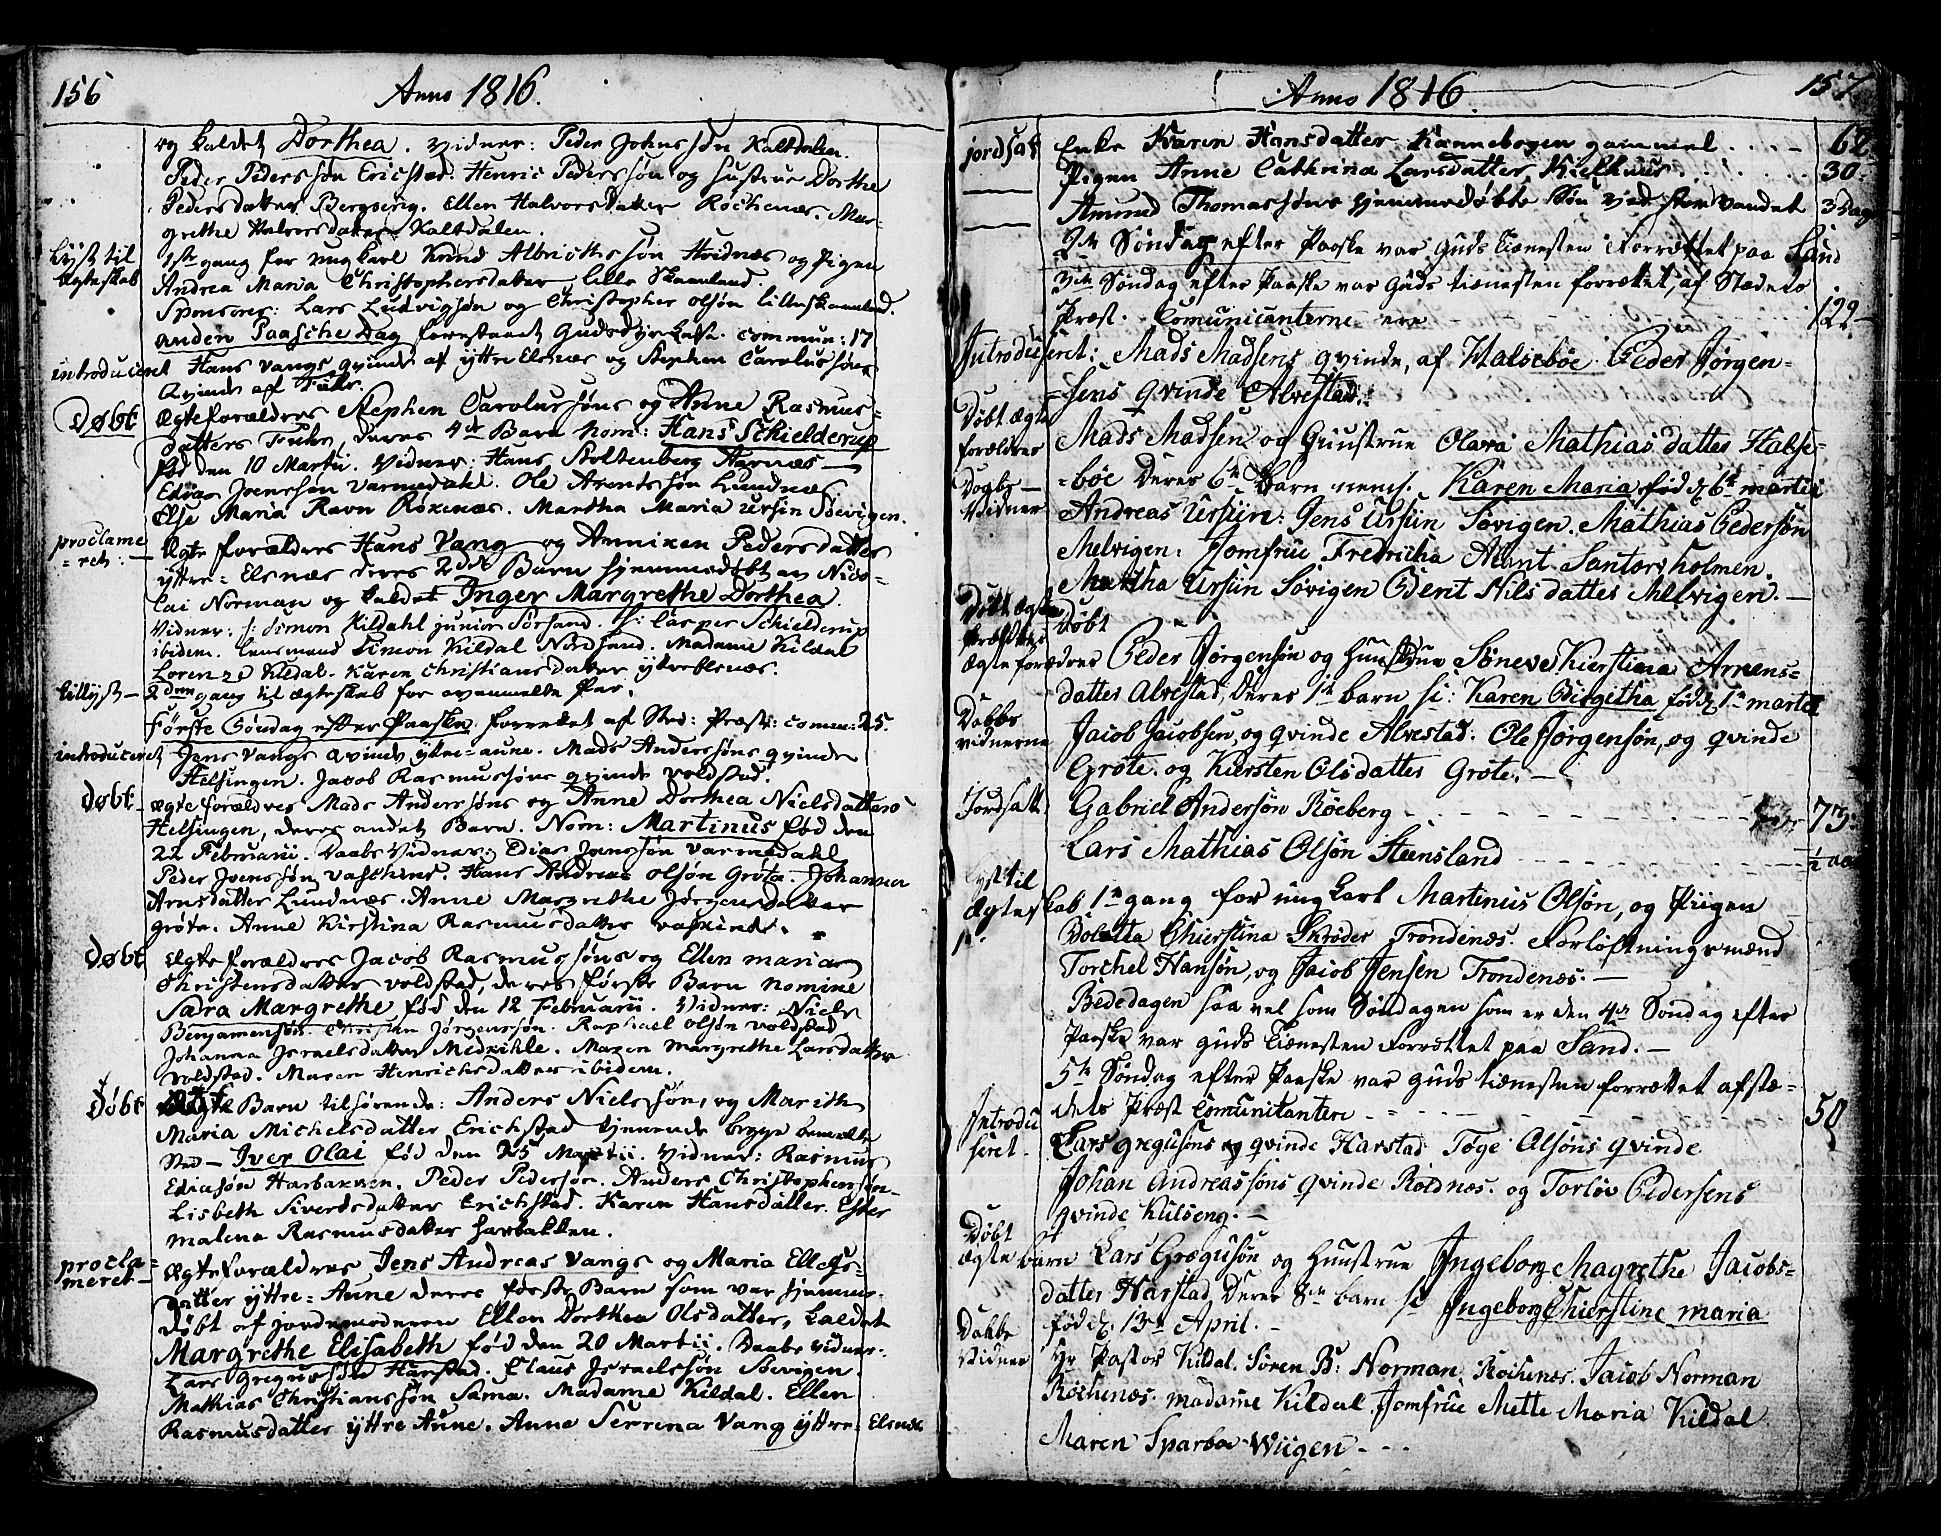 156
Anno 1816.
og kaldet Dorthea. Vidner: Peder Johnssøn Kaltdalen.
Peder Pederssøn Ericstad. Henric Pederssøn og Hustrue Dorthe
Pedersdatter Bergseng. Ellen Halvorsdatter Røckenæs. Mar-
grethe Halvorsdatter Kaltdalen.
Lyst til
Ægteskab
1ste gang for ungkarl Knud Albrictssøn Hvidnæs og Pigen
Andrea Maria Christophersdatter lille Skaanland.
Sponsores: Lars Ludvigsøn og Christopher Olsøn lilleskaanland.
anden Paasche Dag forestaaet Gudsdyrkelse. commun: 17
introduceret Hans Vangs qvinde af yttre Elsnæs og Stephen Carolussøns
Qvinde af Fuhr.
Døbt
Ægteforældres Stephen Carolussøns og Anne Rasmus-
datters Fuhr, deres 4de Barn nom: Hans Schielderup
fød den 10 Martii. Vidner: Hans Stoltenberg Aarnæs
Edias Joenssøn Varmedahl. Ole Arentssøn Lundnæs
Else Maria Ravn Röxenæs. Martha Maria Ursin Söevigen.
proclame
=ret: Ægteforældres Hans Vang og Anniken Pedersdatter
yttre=Elsnæs deres 2det Barn hjemmedøbt av Nico-
lai Norman og kaldet Inger Margrethe Dorthea.
Vidner: S: Simon Kildahl junior Sørsand. H: Casper Schielderup
ibidem. Lensmand Simon Kildal Nordsand. Madame Kildal
Lorenze Kildal. Karen Christiansdatter yttreElsnæs.
tillyst 2den gang til ægteskab for ovenmeldte Par.
Første Søndag efter Paasken forrettet af Sted: Præst: commun: 25.
introduceret Jens Vangs Qvinde yttre=Aune. Mads Anderssøns qvinde
Helsingen. Jacob Rasmussøns qvinde Voldstad.
Døbt
Ægteforældres Mads Anderssøns og Anne Dorthea Nielsdatters
Helsingen, deres andet Barn. Nom: Martinus fød den
22 Februarii. Daabs Vidner: Edias Joenssøn Varmedahl
Peder Joenssøn Vaskind. Hans Andreas Olsøn Grøta. Johanna
Arnsdatter Lundnæs. Anne Margrethe Jørgensdatter
grøta. Anne Kirstina Rasmusdatter Vaskinde.
Døbt
Ægteforældres Jacob Rasmussøns og Ellen Maria
Christensdatters Voldstad, deres første Barn nomine
Sara Margrethe fød den 12 Februarii. Vidner: Niels
Benjamensøn. Christen Jörgenssøn. Raphael Olsøn Voldstad
Johanna Israelsdatter Medkihle. Maren Margrethe Larsdatter
Voldstad. Maren Henrichsdatter ibidem.
Døbt
Uægte Barn tilhørende: Anders Nielssøn, og Marith
Maria Michelsdatter Erichstad tjenende begge bemelte
Sted – Iver Olai fød den 25 Martii. Vidner: Rasmus
Ediasøn Harbakken. Peder Pedersøn. Anders Christophersøn
Lisbeth Sivertsdatter Erichstad. Karen Hansdatter. Ester
malena Rasmusdatter Harbakken.
procla-
meret Ægteforældres Jens Andreas Vangs og Maria Ellefs-
datter yttre=Aune deres første Barn som var hjemme-
døbt af jordemoderen Ellen Dorthea Olsdatter, kaldet
Margrethe Elisabeth fød den 20 Martii. Daabs vidner:
Lars Gregussøn Harstad. Claus Israelssøn Sevigen.
Mathias Christianssøn Sama. Madame Kildal. Ellen
Rasmusdatter yttre Aune. Anne Serrena Vang yttre=Elsnæs
Anno 1816.
157
jordsat Enke Karen Hansdatter Kannebogen gammel 62
Pigen Anne Cathrina Larsdatter Kielhuus 30
Amund Thomassøns hjemmedøbte Søn ved storvandet 3 Dage
2n Søndag efter Paaske var Guds tienesten Forrættet paa Sand
3n Søndag efter Paaske var Guds tienesten forrættet, af Stædets
Præst. Comunicanterne ere 122
Introduseret: Mads Madsens qvinde, af Halsebøe. Peder Jørgen-
=sens qvinde Alvestad.
Døbt ægte
forældres
Mads Madsen og Huustrue Olava Mathias dattes Halse-
=bøe deres 6n barn nemf. Karen Maria fød d. 6t martii
Dogbs
Vidner
Andreas Ursiin. Jens Ursiin Sørigen. Mathias Pedersøn
Melvigen. Jomfrue Fredricha Allant Santorsholmen.
Martha Ursiin Sørigen Berit Nils dattes Melvigen.
Døbt ægte
Døbt
ægte forældres Peder Jørgensøn og Huustrue Søneve Kierstina Arnens-
dattes Alvestad, deres 1t barn h: Karen Birgitha fød d. 1n martii
Dabbs
vidnerne
Jacob Jacobsen, og qvinde Alvestad. Ole Jørgensøn, og qvinde
Grøte. og Kiersten Olsdattes Grøte.
Jordsatt
Gabriel Andersøn Røeberg 73
Lars Mathias Olsøn Steensland ½ aar
Lyst til
Ægteskab 1n gang for ungkarl Martinus Olsøn, og Piigen
Bolætta Chierstina Skröder Trondenæs. Forløftningsmænd
Torchel Hansøn, og Jacob Jensen Trondenæs.
Bededagen saa vel som Søndagen som er den 4n Søndag efter
Paaske var guds tienesten Forrættet paa Sand.
5n Søndag efter Paaske var guds tienesten forrættet af stæ-
dets Præst Comunikanten 50
Introdu
seret.
Lars gregusøns qvinde Harstad. Töge Olsøns qvinde
Johan Andreassøns qvinde Röldnæs. og Torlöv Pedersens
qvinde Kulseng.
Døbt
ægte barn Lars Gregusøn og Huustrue Ingeborg Magrethe Jacobs-
datter Harstad, deres 8n barn h Ingeborg Chierstine maria
fød d. 13n April.
Dabbs
vidner
Hr Pastor Kildal. Sören B: Norman, Röchenæs. Jacob Norman
Röchenæs. madame Kildal, Jomfrue Mette Maria Kildal
Maren Sparboe Wiigen.